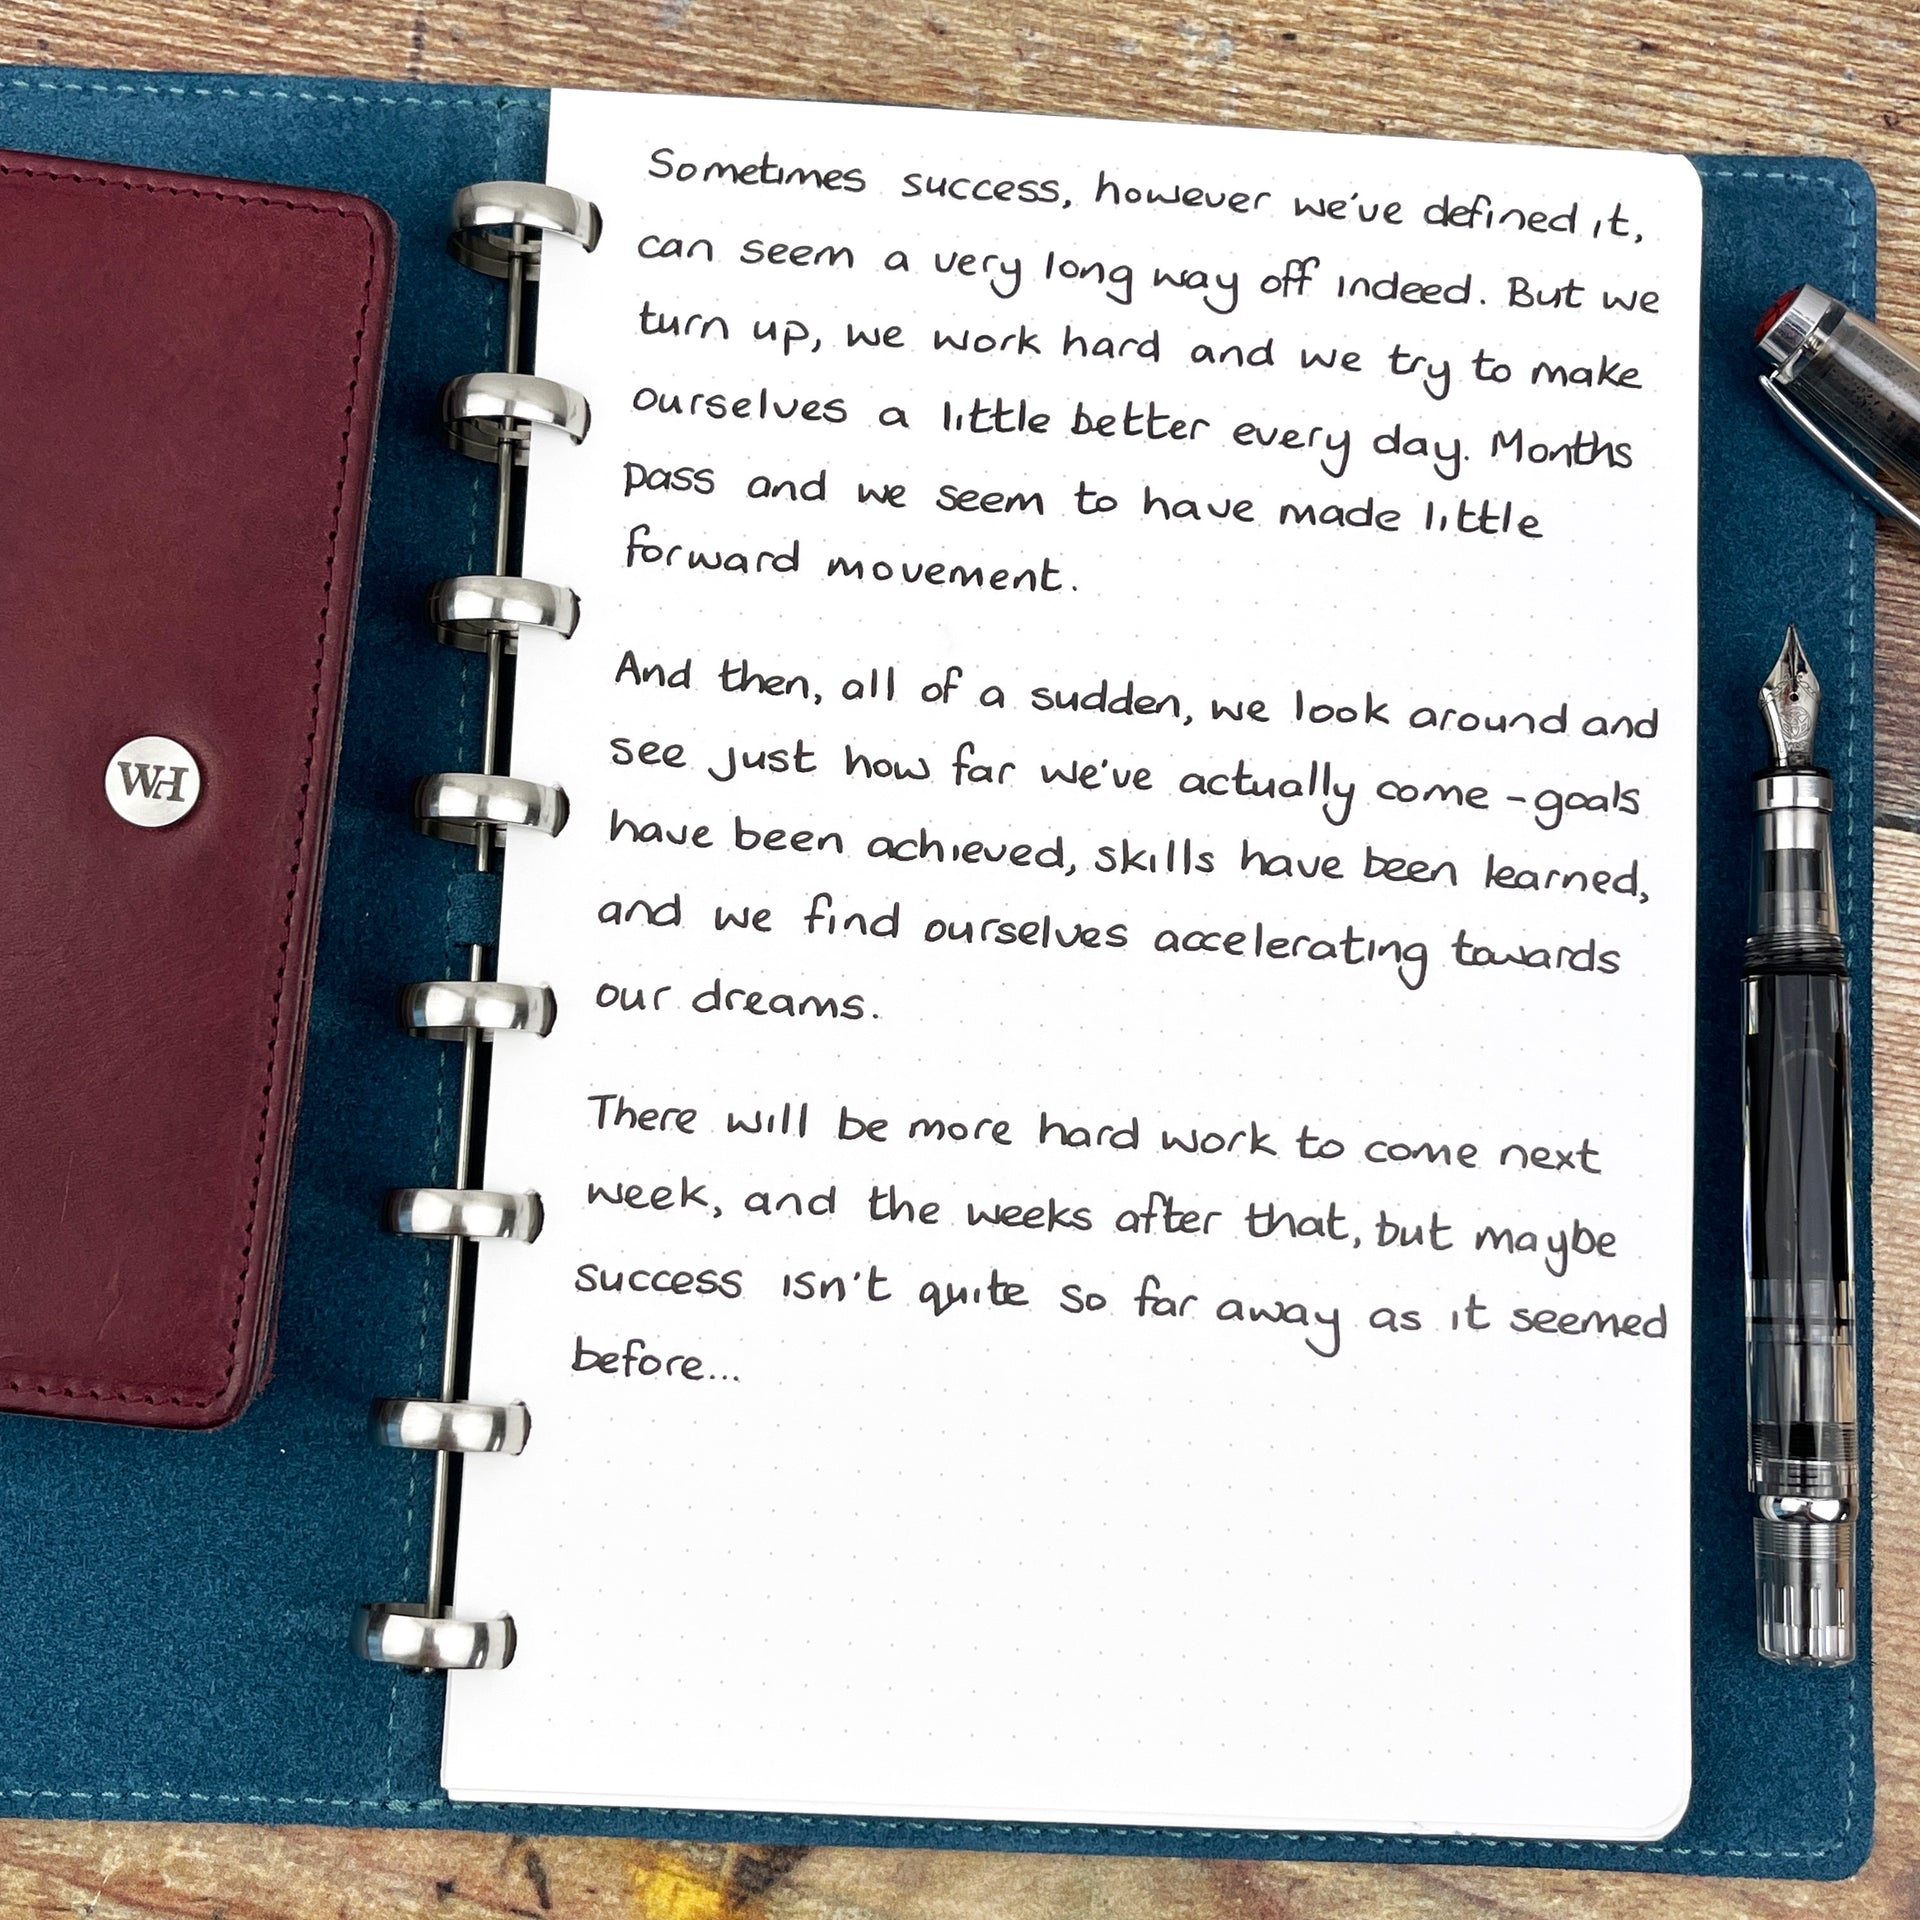 WH
Sometimes success, however we've defined it,
can seem a very long way off indeed. But we
turn up, we work hard and we try to make
ourselves a little better every day. Months
pass and we seem to have made little
forward movement.
And then, all of a sudden, we look around and
see just how far we've actually come - goals
have been achieved, skills have been learned,
and we find ourselves accelerating towards
our dreams.
There will be more hard work to come next
week, and the weeks after that, but maybe
success isn't quite so far away as it seemed
before...